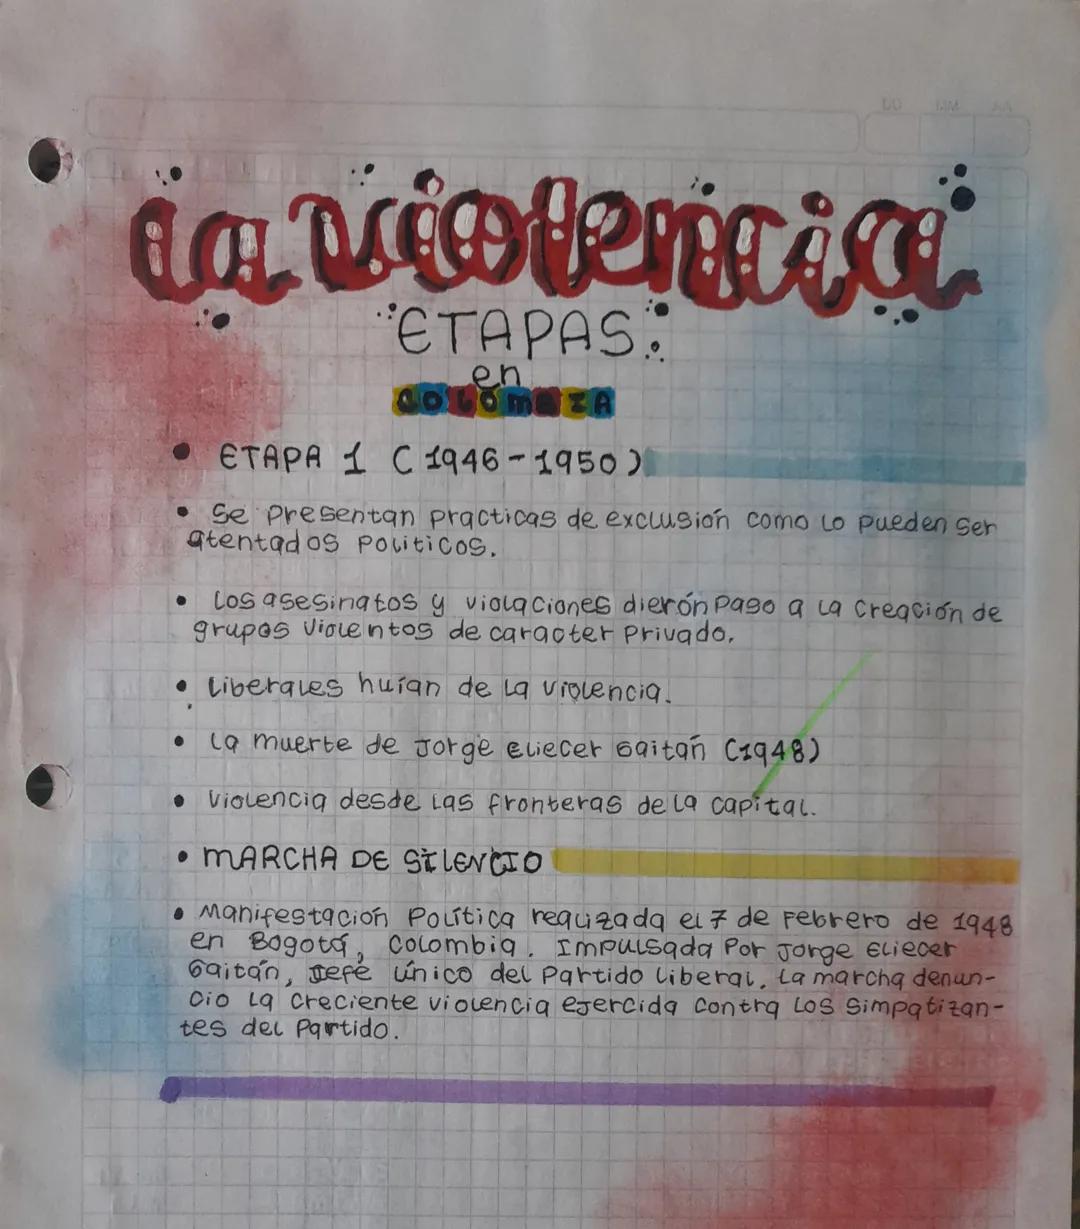 DD MM AA
La violencia
"ETAPAS:
en
COLOMBIA
• ETAPA 1 (1946-1950)
• Se presentan practicas de exclusión como lo pueden ser
atentados politicos.
• Los asesinatos y violaciones dierón paso a la creación de
grupos violentos de caracter privado.
• Liberales huían de la violencia.
• La muerte de Jorge Eliecer Gaitán (1948)
• Violencia desde las fronteras de la capital.
• MARCHA DE SILENCIO
• Manifestación Política realizada el 7 de Febrero de 1948
en Bogotá, Colombia. Impulsada Por Jorge Eliecer
Gaitán, Jefe único del Partido liberal. La marcha denun-
cio la creciente violencia ejercida contra los simpatizan-
tes del Partido.